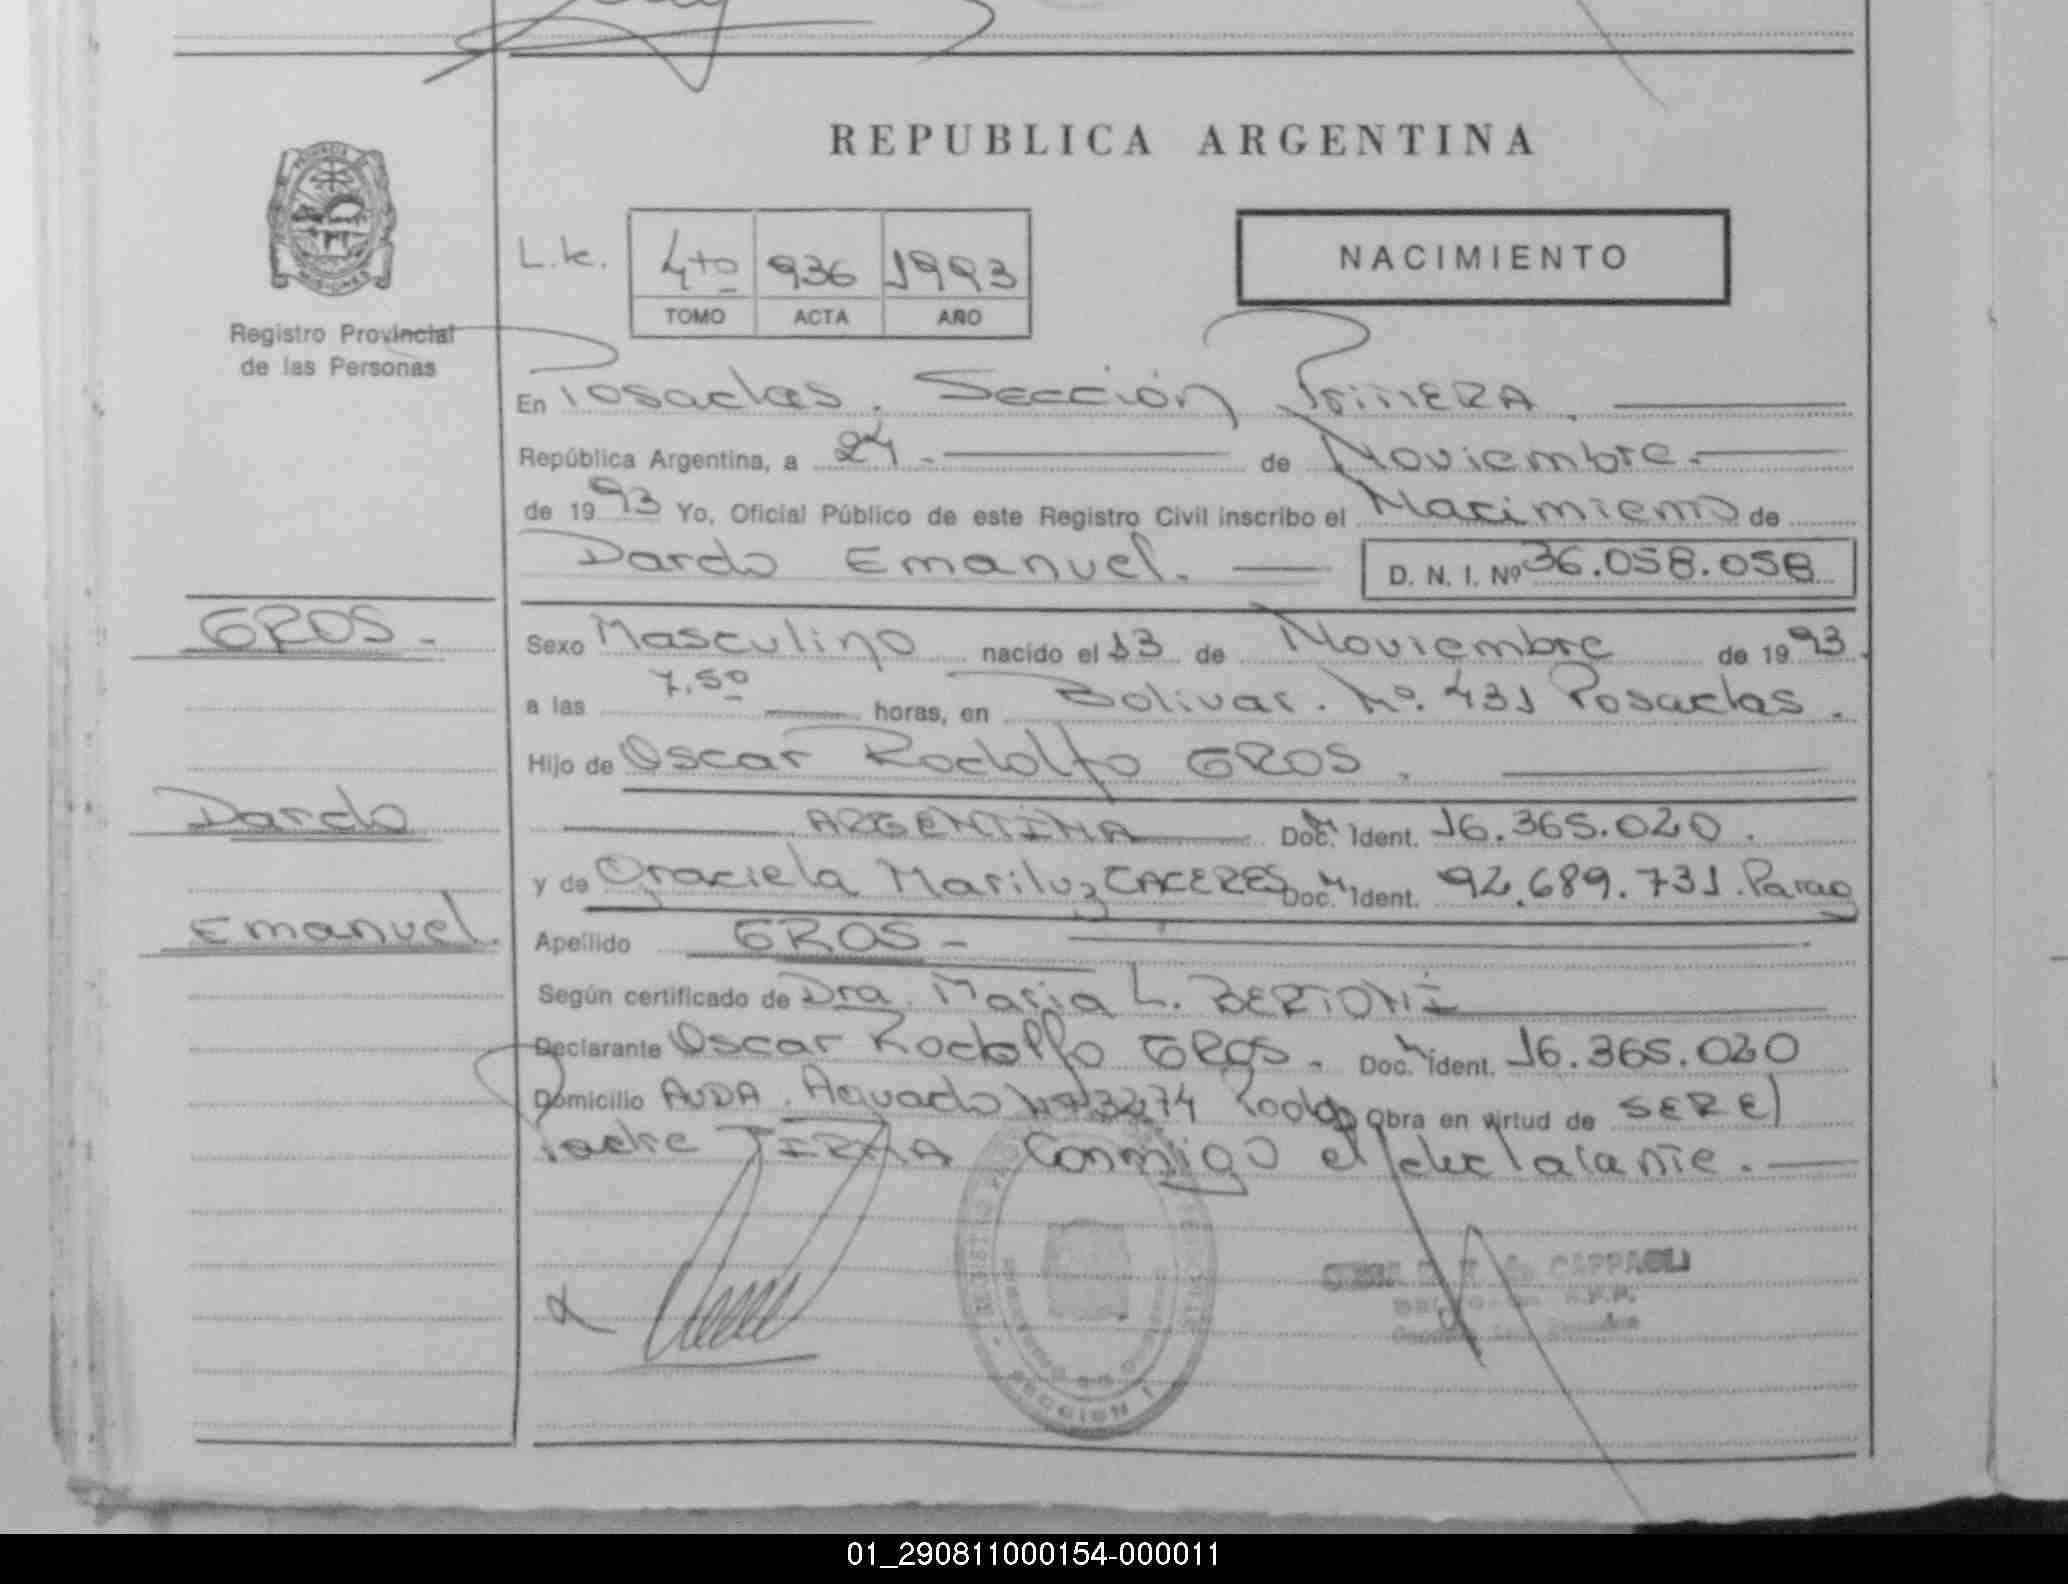 REPUBLICA ARGENTINA
PROVINCIA DE
MISIONES
Registro Provincial
de las Personas
L.k. 4to 936 1993
TOMO ACTA AÑO
NACIMIENTO
En Posadas. Sección Primera.
República Argentina, a 24. de Noviembre.
de 1993 Yo, Oficial Público de este Registro Civil inscribo el Nacimiento de
Dardo Emanuel. D. N. I. Nº 36.058.058
GROS.
Dardo
Emanuel.
Sexo Masculino nacido el 13 de Noviembre de 1993.
a las 7.50 horas, en Bolivar. Nº. 431 Posadas.
Hijo de Oscar Rodolfo GROS.
ARGENTINA Doc. Ident. 16.365.020.
y de Graciela Mariluz CACERES Doc. Ident. 92.689.731. Parag
Apellido GROS-
Según certificado de Dra. Maria L. BERTONI
Declarante Oscar Rodolfo GROS. Doc. Ident. 16.365.020
Domicilio AVDA. Aguado Nº 3274 Obra en virtud de SER El
Padre FIRMA Conmigo el declarante.
CAPPAGLI
SECCION 1
01_290811000154-000011